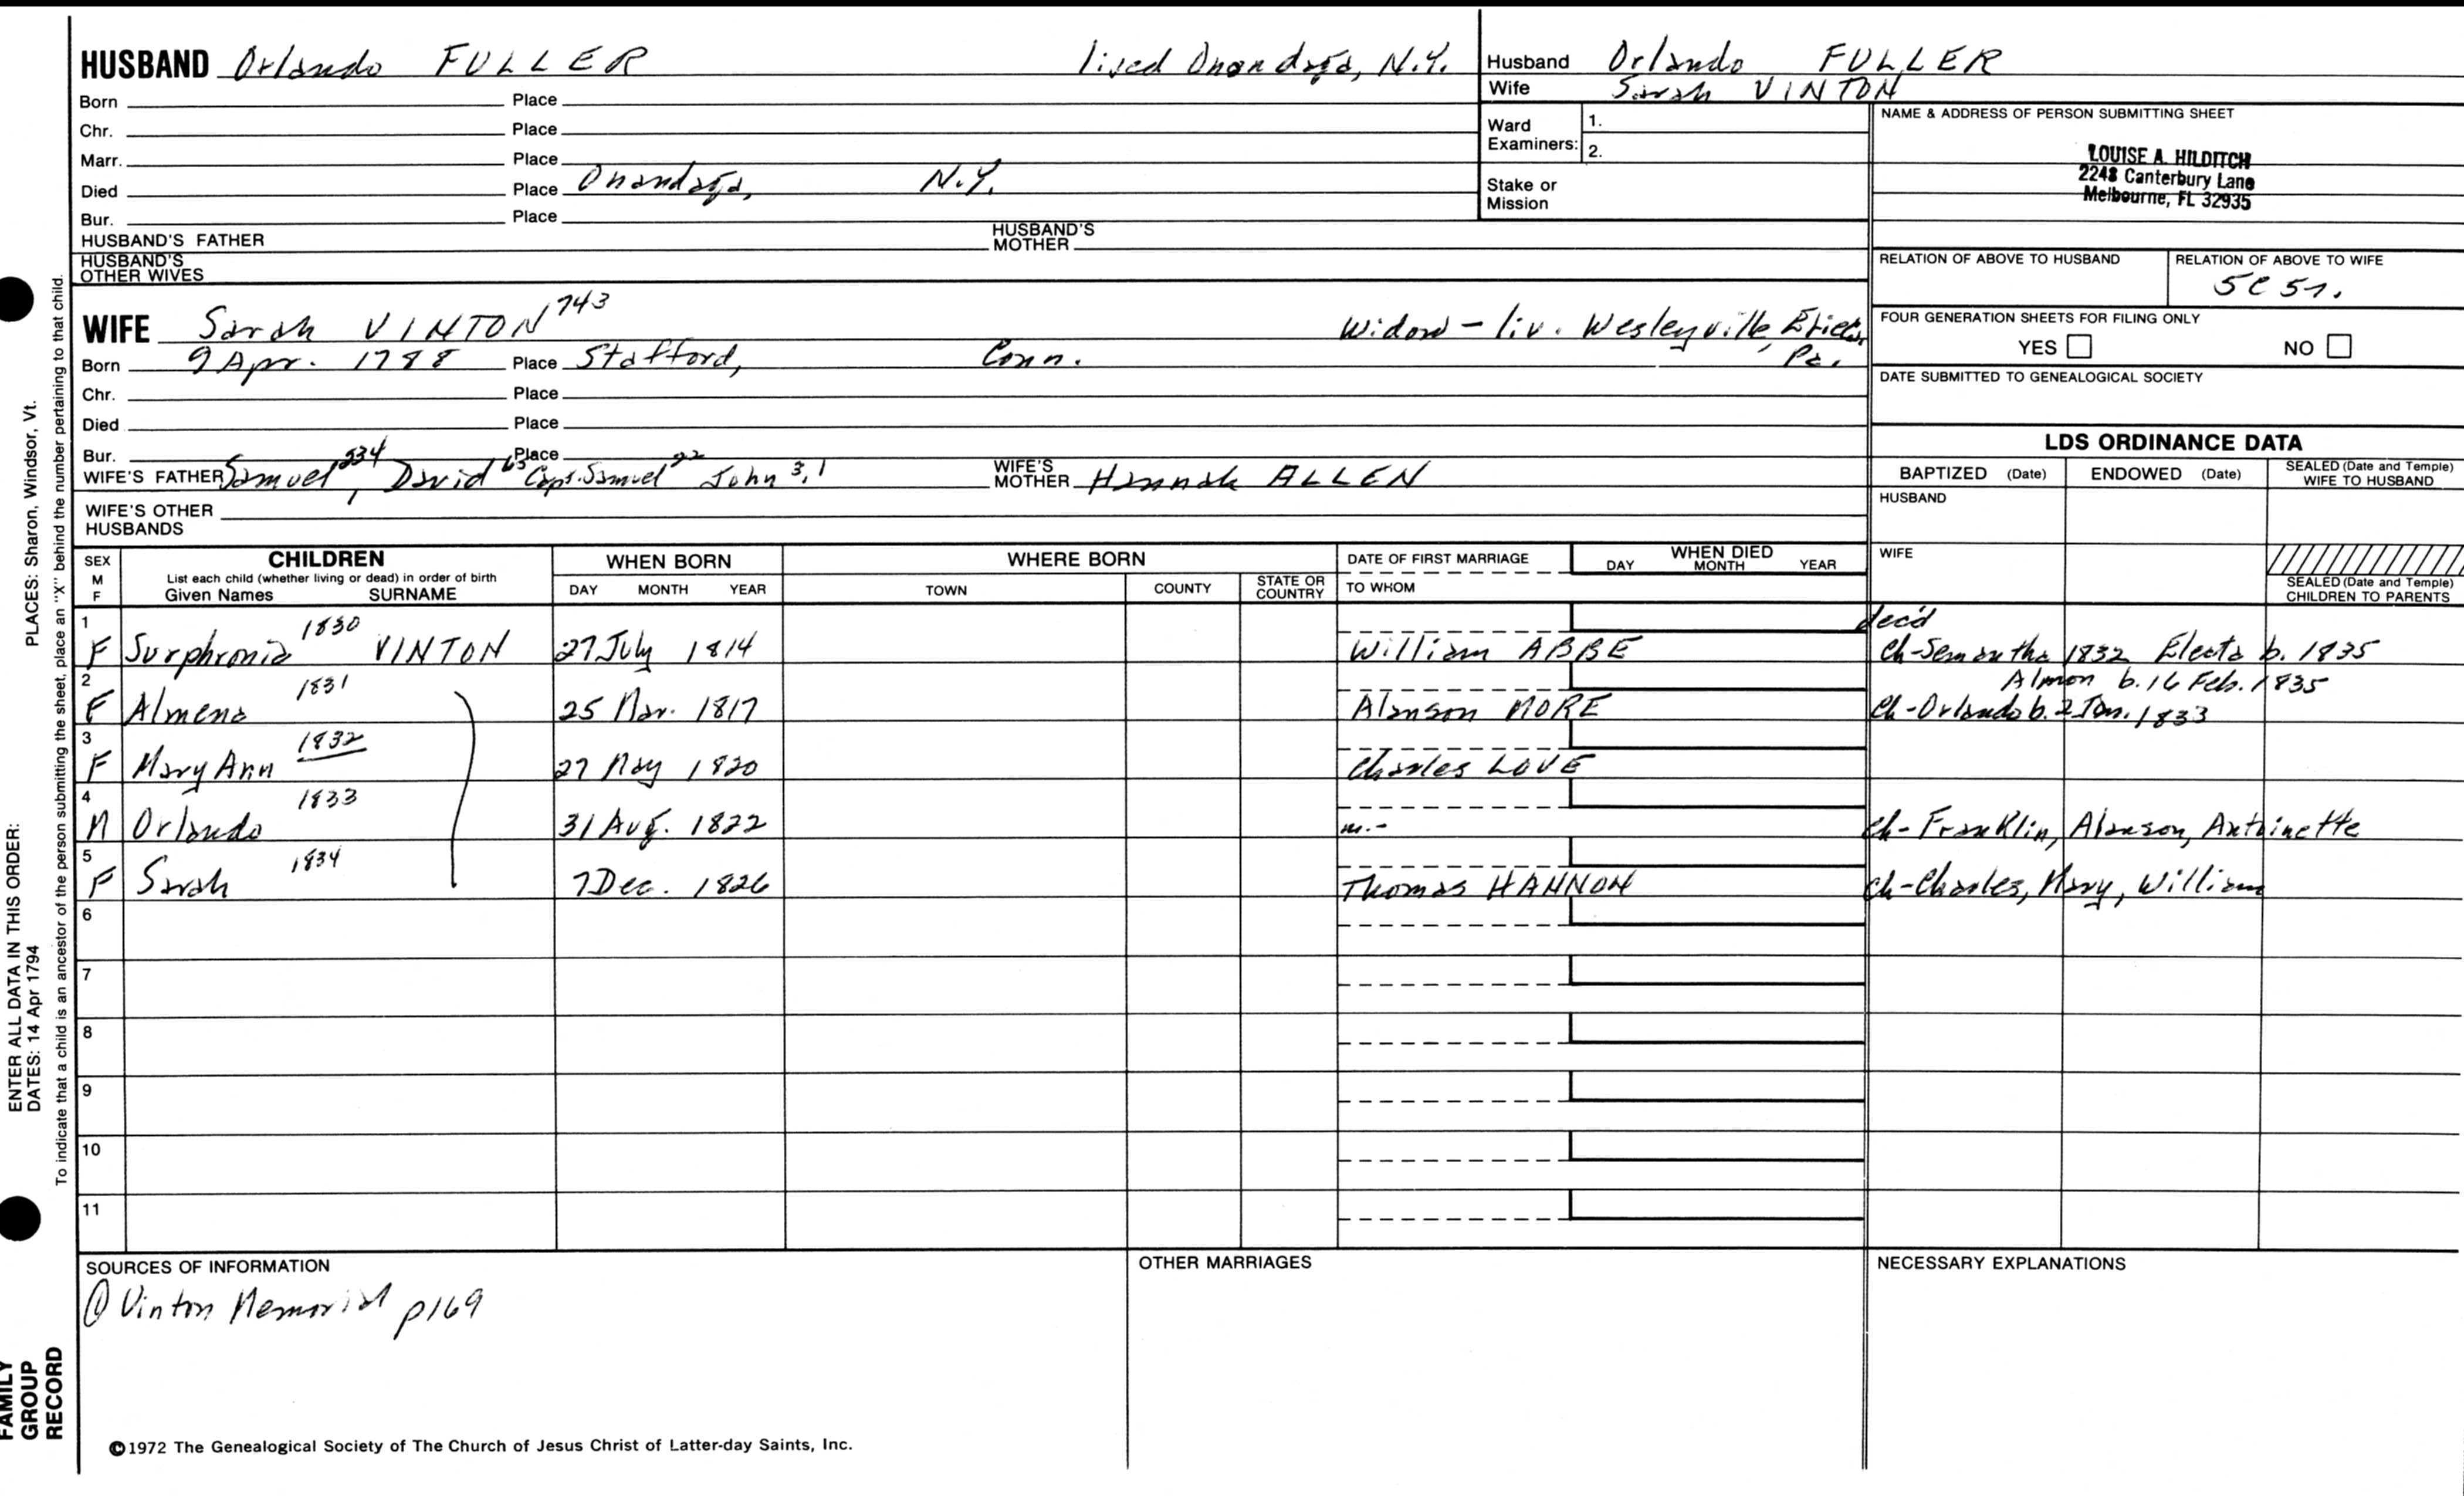 HUSBAND Orlando FULLER lived Onondaga, N.Y.
Born Place
Chr. Place
Marr. Place
Died Place Onondaga, N.Y.
Bur. Place
HUSBAND'S FATHER HUSBAND'S MOTHER
HUSBAND'S OTHER WIVES
Husband Orlando FULLER
Wife Sarah VINTON
Ward Examiners: 1.
2.
Stake or Mission
NAME & ADDRESS OF PERSON SUBMITTING SHEET
LOUISE A. HILDITCH
2248 Canterbury Lane
Melbourne, FL 32935
RELATION OF ABOVE TO HUSBAND RELATION OF ABOVE TO WIFE
5C 5r.
FOUR GENERATION SHEETS FOR FILING ONLY
YES NO
DATE SUBMITTED TO GENEALOGICAL SOCIETY
WIFE Sarah VINTON 743 Widow - liv. Wesleyville, Erie Co., Pa.
Born 9 Apr. 1788 Place Stafford, Conn.
Chr. Place
Died Place
Bur. Place
WIFE'S FATHER Samuel 234, David 65 Capt. Samuel 22 John 3,1 WIFE'S MOTHER Hannah ALLEN
WIFE'S OTHER HUSBANDS
LDS ORDINANCE DATA
BAPTIZED (Date) ENDOWED (Date) SEALED (Date and Temple) WIFE TO HUSBAND
HUSBAND
WIFE
SEALED (Date and Temple) CHILDREN TO PARENTS
SEX M F CHILDREN List each child (whether living or dead) in order of birth Given Names SURNAME
WHEN BORN DAY MONTH YEAR
WHERE BORN TOWN COUNTY STATE OR COUNTRY
DATE OF FIRST MARRIAGE TO WHOM
WHEN DIED DAY MONTH YEAR
1 F Surphronia 1830 VINTON 27 July 1814 William ABBE dec'd
Ch-Semantha 1832 Electa b. 1835
Almon b. 16 Feb. 1835
2 F Almena 1831 25 Mar. 1817 Alanson MORE Ch-Orlando b. 2 Jan. 1833
3 F Mary Ann 1832 27 May 1820 Charles LOVE
4 M Orlando 1833 31 Aug. 1822 m.- Ch- Franklin, Alanson, Antoinette
5 F Sarah 1834 7 Dec. 1826 Thomas HANNON Ch-Charles, Mary, William
6
7
8
9
10
11
SOURCES OF INFORMATION
① Vinton Memorial p169
OTHER MARRIAGES
NECESSARY EXPLANATIONS
©1972 The Genealogical Society of The Church of Jesus Christ of Latter-day Saints, Inc.
FAMILY GROUP RECORD
ENTER ALL DATA IN THIS ORDER:
DATES: 14 Apr 1794
PLACES: Sharon, Windsor, Vt.
To indicate that a child is an ancestor of the person submitting the sheet, place an "X" behind the number pertaining to that child.